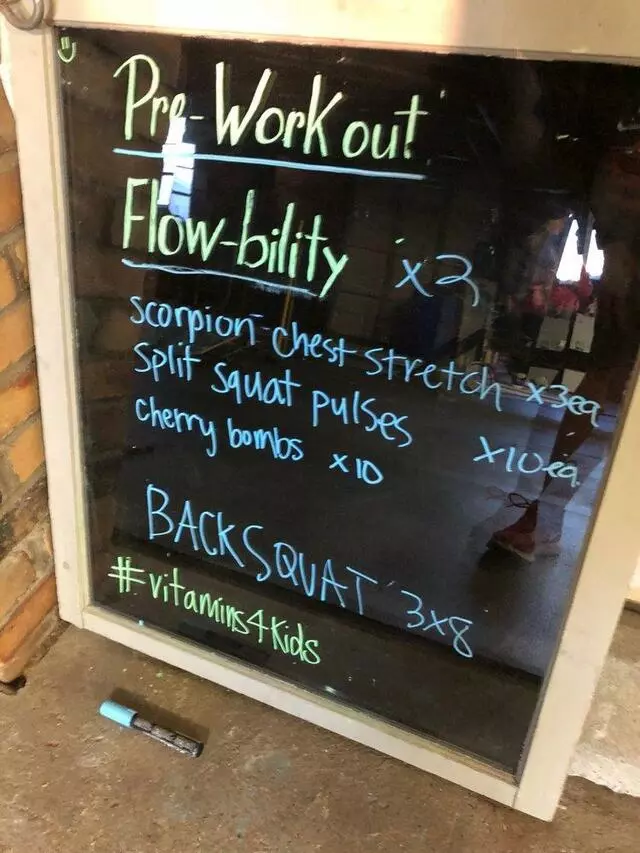 Pre-Work out
Flow-bility x2
scorpion chest stretch x3ea
split squat pulses x10ea.
cherry bombs x10
BACK SQUAT 3x8
#vitamins4kids